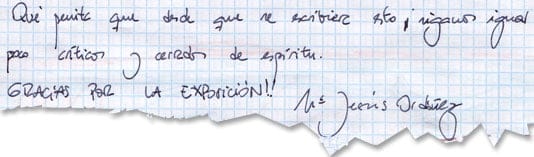 Qué penita que desde que se escribiera esto ¡ sigamos igual
poco críticos y cerrados de espíritu.
GRACIAS POR LA EXPOSICIÓN!!
Mª Jesús Ordúñez